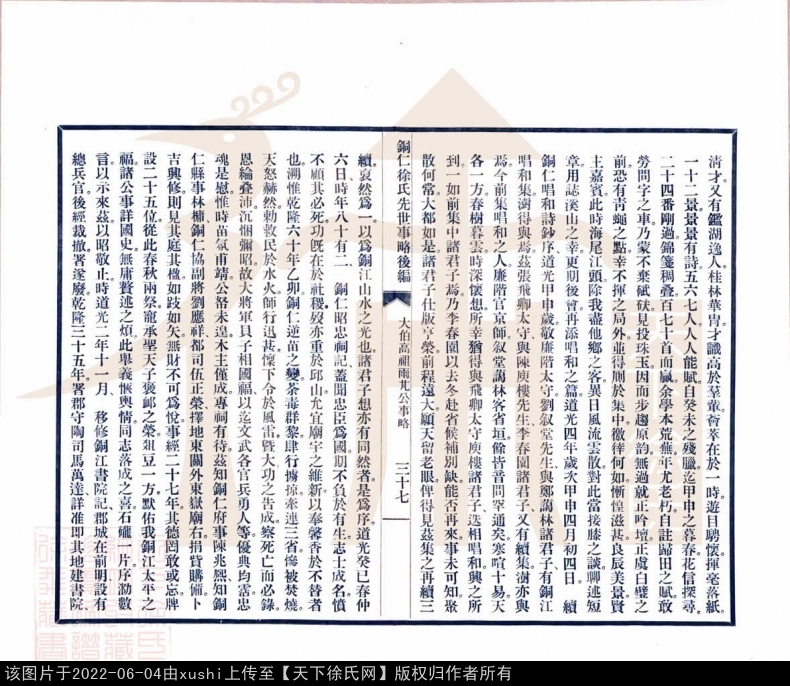 清才又有鑑湖逸人桂林華胄才識高於羣輩薈萃在於一時遊目騁懷揮毫落紙
一十二景景景有詩五六七人人人能賦自癸未之殘臘迄甲申之暮春花信探尋
二十四番剛過錦箋稠疊百七十首而贏余學本荒蕪年尤老朽自註歸田之賦敢
勞問字之車乃蒙不棄碔砆見投珠玉因而步趨原韵無過就正吟壇正虞白璧之
前恐有青蠅之點幸不揮之局外並得厠於集中徽徉何如慚惶滋甚良辰美景賢
主嘉賓此時海尾江頭除我盡他鄉之客異日風流雲散對此當接膝之談聊述短
章用誌溪山之幸更期後會再添唱和之篇道光四年歲次甲申四月初四日　續
銅仁唱和詩鈔序道光甲申歲敬廉階太守劉叙堂先生與鄭蔼林諸君子有銅江
唱和集澍得與焉茲張飛卿太守與陳庾樓先生李春園諸君子又有續集澍亦與
焉今前集唱和之人廉階官京師叙堂蔼林客省垣餘皆音問罕通矣寒喧十易天
各一方春樹暮雲時深懷想所幸猶得與飛卿太守庾樓諸君子迭相唱和興之所
到一如前集中諸君子焉乃李春園以去冬赴省候補別缺能否再來事未可知聚
散何常大都如是諸君子仕版亨榮前程遠大顧天留老眼俾得見茲集之再續三
銅仁徐氏先世事略後編　大伯高祖雨芃公事略　三十七
續哀然爲一以爲銅江山水之光也諸君子想亦有同然者是爲序道光癸巳春仲
六日時年八十有二　銅仁昭忠祠記蓋聞忠臣爲國期不負於有生志士成名憤
不顧其必死功旣在於社稷殁亦重於邱山允宜廟宇之維新以奉馨香於不替者
也溯惟乾隆六十年乙卯銅仁逆苗之變荼毒群黎肆行擄掠牽連三省慘被焚燒
天怒赫然勅救民於水火師行迅甚懍下令於風雷曁大功之告成察死亡而必錄
恩綸疊沛沉悃彌昭故大將軍貝子相國福以迄文武各官兵勇人等優典均霑忠
魂是慰惟時苗氛甫靖公帑未遑木主僅成專祠有待茲知銅仁府事陳兆熙知銅
仁縣事林楠銅仁協副將劉應祥都司伍正榮擇地東關外東嶽廟右捐貲購備卜
吉興修則見其庭其楹如跂如矢無財不可爲悅事經二十七年其德罔敢或忘牌
設二十五位從此春秋兩祭寵承聖天子褒卹之榮俎豆一方默佑我銅江太平之
福諸公事詳國史無庸贅述之煩此舉義愜輿情同志落成之喜石礲一片序泐數
言以示來茲以昭敬止時道光二年十一月　移修銅江書院記郡城在前明設有
總兵官後經裁撤署遂廢乾隆三十五年署郡守陶司馬萬達詳准即其地建書院
该图片于2022-06-04由xushi上传至【天下徐氏网】版权归作者所有